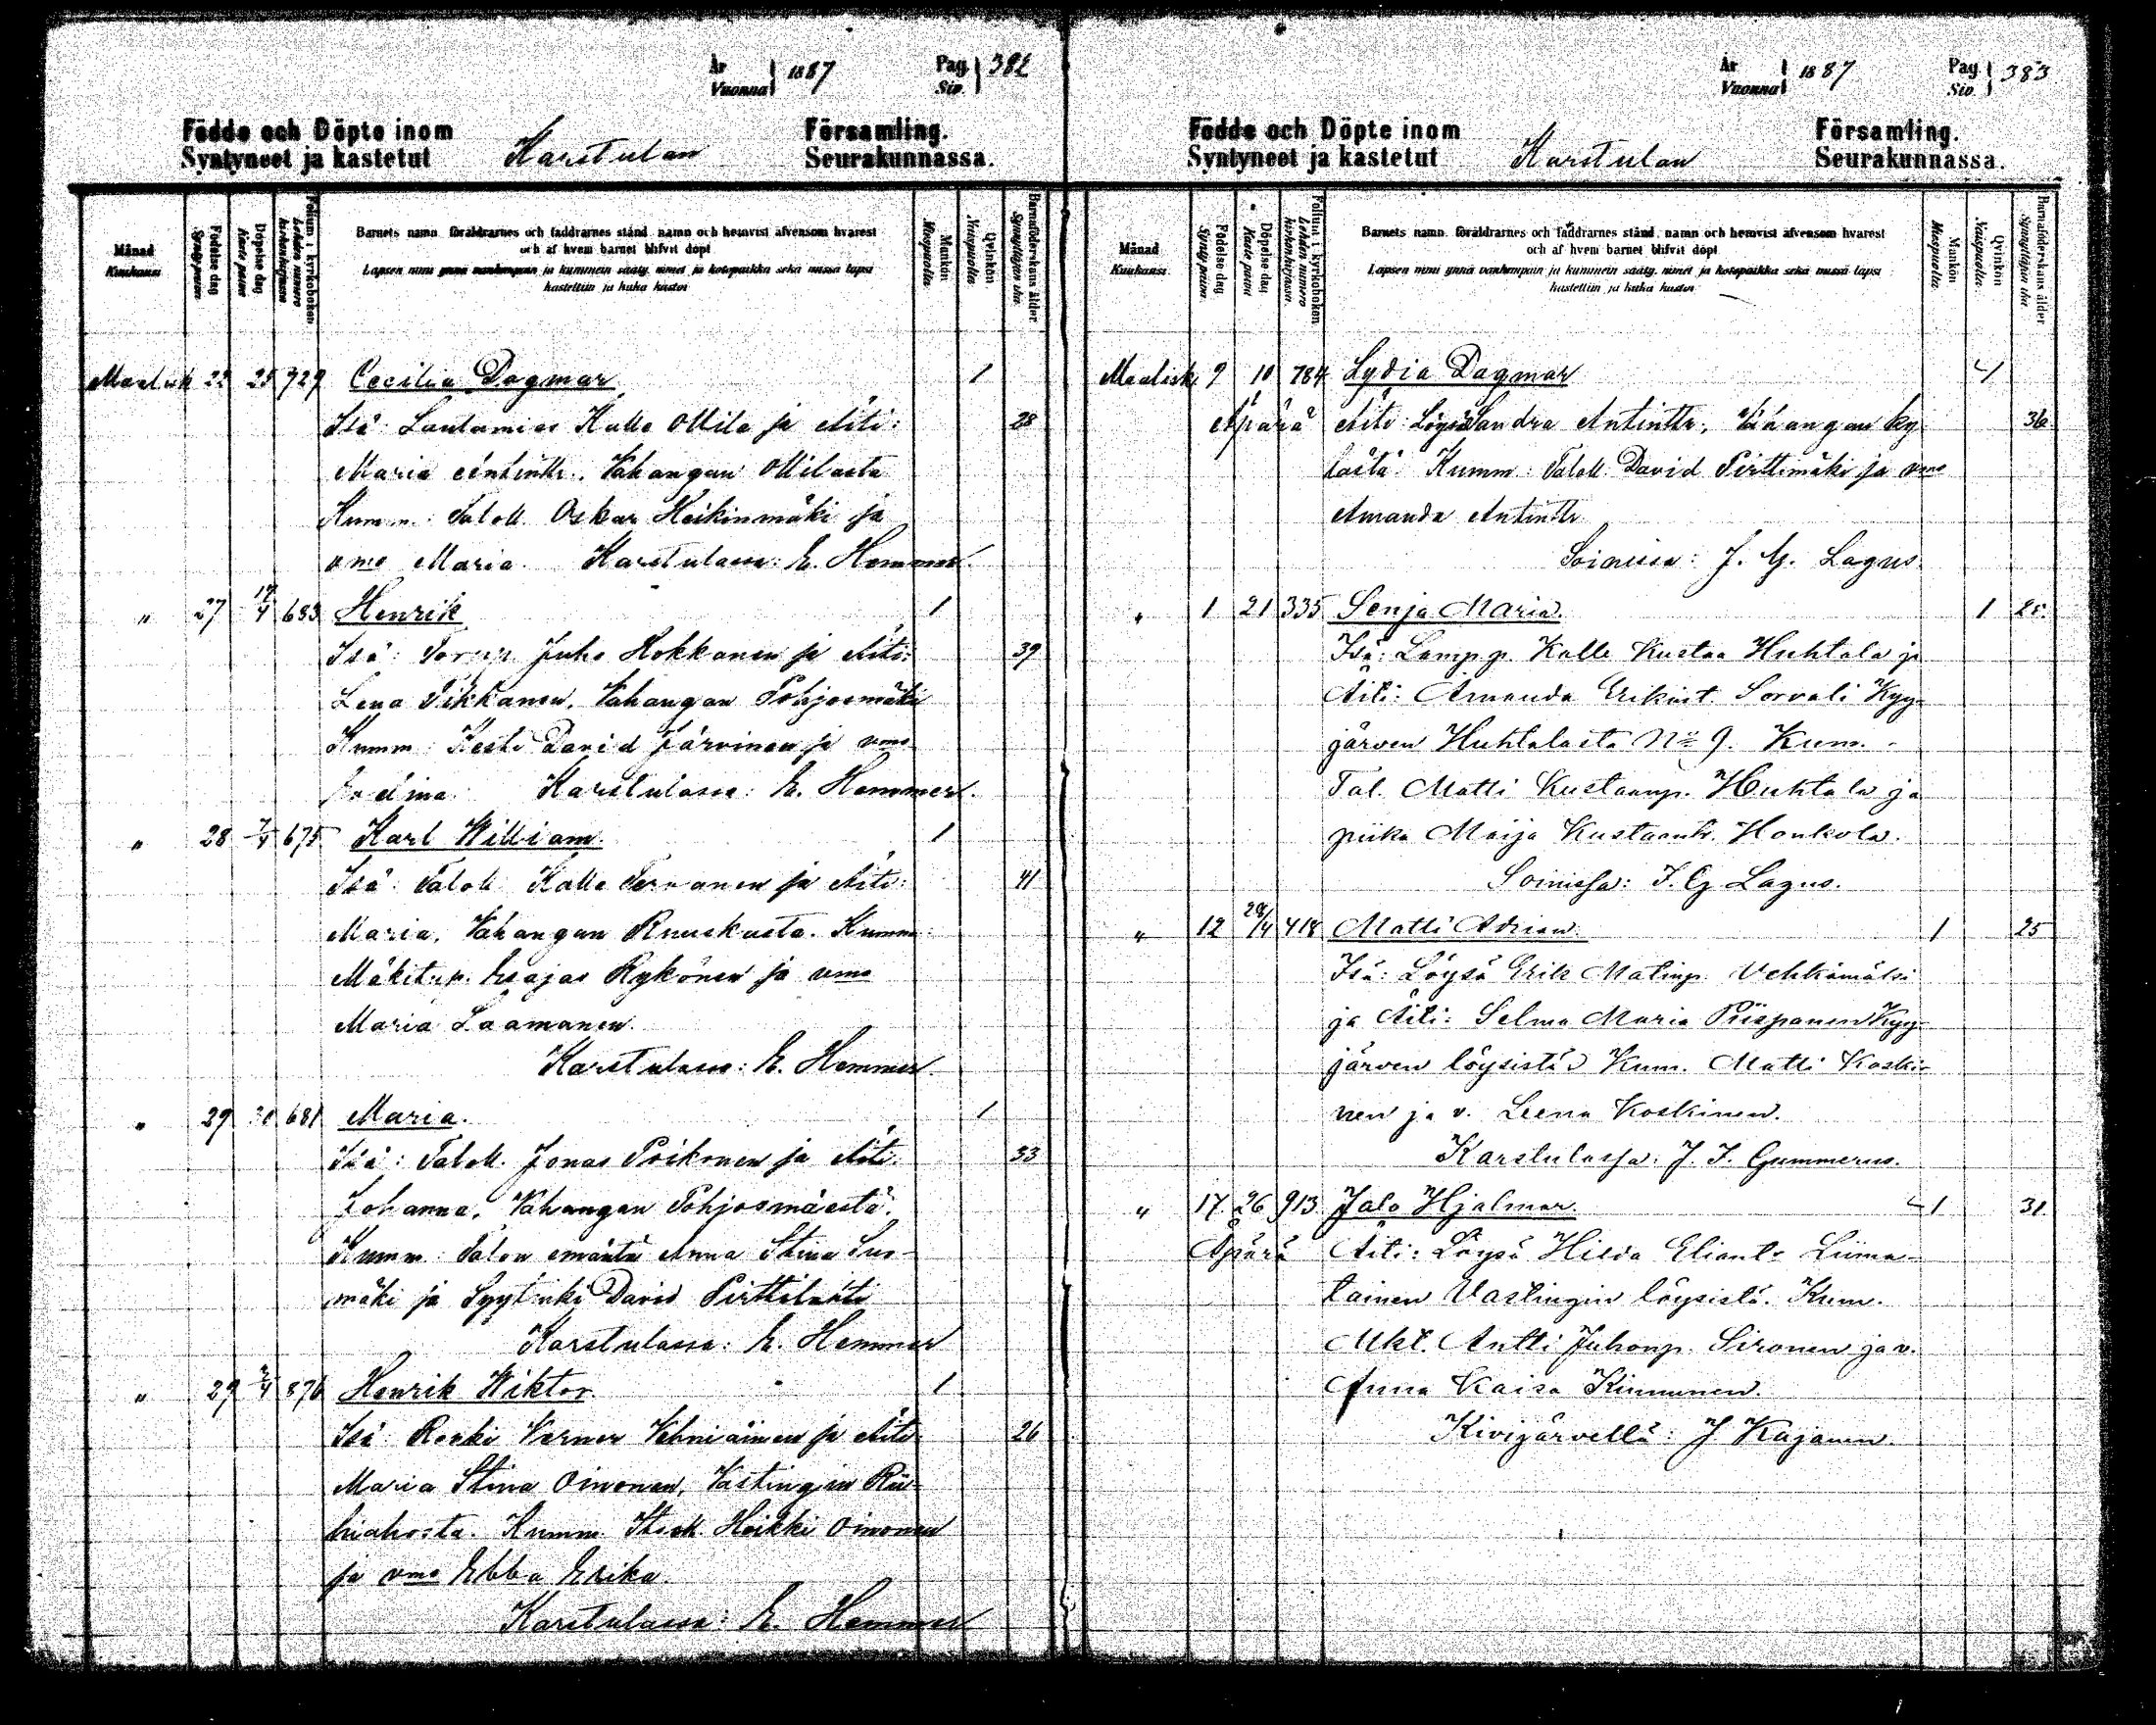 År
Vuonna 1887
Pag.
Siv. 382
Födde och Döpte inom Karstulan Församling.
Syntyneet ja kastetut Seurakunnassa.
Månad
Kuukausi
Födelse dag
Synty päivä
Döpelse dag
Kaste päivä
Folium i kyrkoboken
Lehden numero kirkonkirjassa
Barnets namn, föräldrarnes och faddrarnes stånd, namn och hemvist äfvensom hvarest
och af hvem barnet blifvit döpt
Lapsen nimi ynnä vanhempain ja kummein sääty, nimet ja kotopaikka sekä missä lapsi
kastettiin ja kuka kastoi
Mankön
Miespuolia
Qvinkön
Naispuolia
Barnaföderskans ålder
Synnyttäjän ikä
Maalisk 22 25 729 Cecilia Dagmar 1
Isä: Lautamies Kalle Ollila ja Äiti: 28
Maria Antintr. Vahangan Ollilasta
Kumm: Taloll. Oskar Heikinmäki ja
vmo Maria. Karstulassa: E. Hemmer.
" 27 17/4 683 Henrik 1
Isä: Torpp. Juho Hokkanen ja Äiti: 39
Lena Pikkanen, Vahangan Pohjosmäki
Kumm: Kesti David Järvinen ja vmo
Karstulassa: E. Hemmer.
" 28 7/4 675 Karl William. 1
Isä: Taloll Kalle Tervanen ja Äiti: 41
Maria, Vahangan Ruuskasta. Kumm:
Mäkitup. Esajas Rykönen ja vmo
Maria Laamanen.
Karstulassa: E. Hemmer
" 29 30 681 Maria. 1
Isä: Taloll. Jonas Poikonen ja Äiti. 33
Johanna, Vahangan Pohjosmäestä.
Kumm: Talon emäntä Anna Stina Sus-
mäki ja Syytinki David Pirttilahti
Karstulassa: E. Hemmer
" 29 2/4 876 Henrik Wiktor 1
Isä: Renki Verner Vehniäinen ja Äiti 26
Maria Stina Oinonen, Vastingin Rii-
hiahosta. Kumm. Heikki Oinonen
ja vmo Ebba Erika.
Karstulassa: E. Hemmer
År
Vuonna 1887
Pag.
Siv. 383
Födde och Döpte inom Karstulan Församling.
Syntyneet ja kastetut Seurakunnassa.
Månad
Kuukausi
Födelse dag
Synty päivä
Döpelse dag
Kaste päivä
Folium i kyrkoboken
Lehden numero kirkonkirjassa
Barnets namn, föräldrarnes och faddrarnes stånd, namn och hemvist äfvensom hvarest
och af hvem barnet blifvit döpt
Lapsen nimi ynnä vanhempain ja kummein sääty, nimet ja kotopaikka sekä missä lapsi
kastettiin ja kuka kastoi
Mankön
Miespuolia
Qvinkön
Naispuolia
Barnaföderskans ålder
Synnyttäjän ikä
Maalisk. 9 10 784 Lydia Dagmar 1
Äpärä Äiti: Löysä Sandra Antintr., Vahangan ky- 36
lästä. Kumm: Taloll. David Pirttimäki ja vmo
Amanda Antintr
Soinissa: J. G. Lagus.
" 1 21 335 Senja Maria. 1 25.
Isä: Lampp. Kalle Kustaa Huhtala ja
Äiti: Amanda Erikint. Sorvali Kyy-
järven Huhtalasta No 9. Kum.
Tal. Matti Kustaanp. Huhtala ja
piika Maija Kustaantr. Honkola.
Soinissa: J. G Lagus.
" 12 28/4 418 Matti Adrian. 1 25
Isä: Löysä Erik Matinp. Vehkämäki
ja Äiti: Selma Maria Piispanen Kyy-
järven löysistä Kum. Matti Koski-
nen ja v. Leena Koskinen.
Karstulassa: J. J. Gummerus.
" 17. 26 913. Jalo Hjalmar. 1 31.
Äpärä Äiti: Löysä Hilda Eliantr Liima-
tainen Vastingin löysistä. Kum.
Mkt. Antti Juhonp. Sironen ja v.
Anna Kaisa Kinnunen.
Kivijärvellä: J. Kajanen.